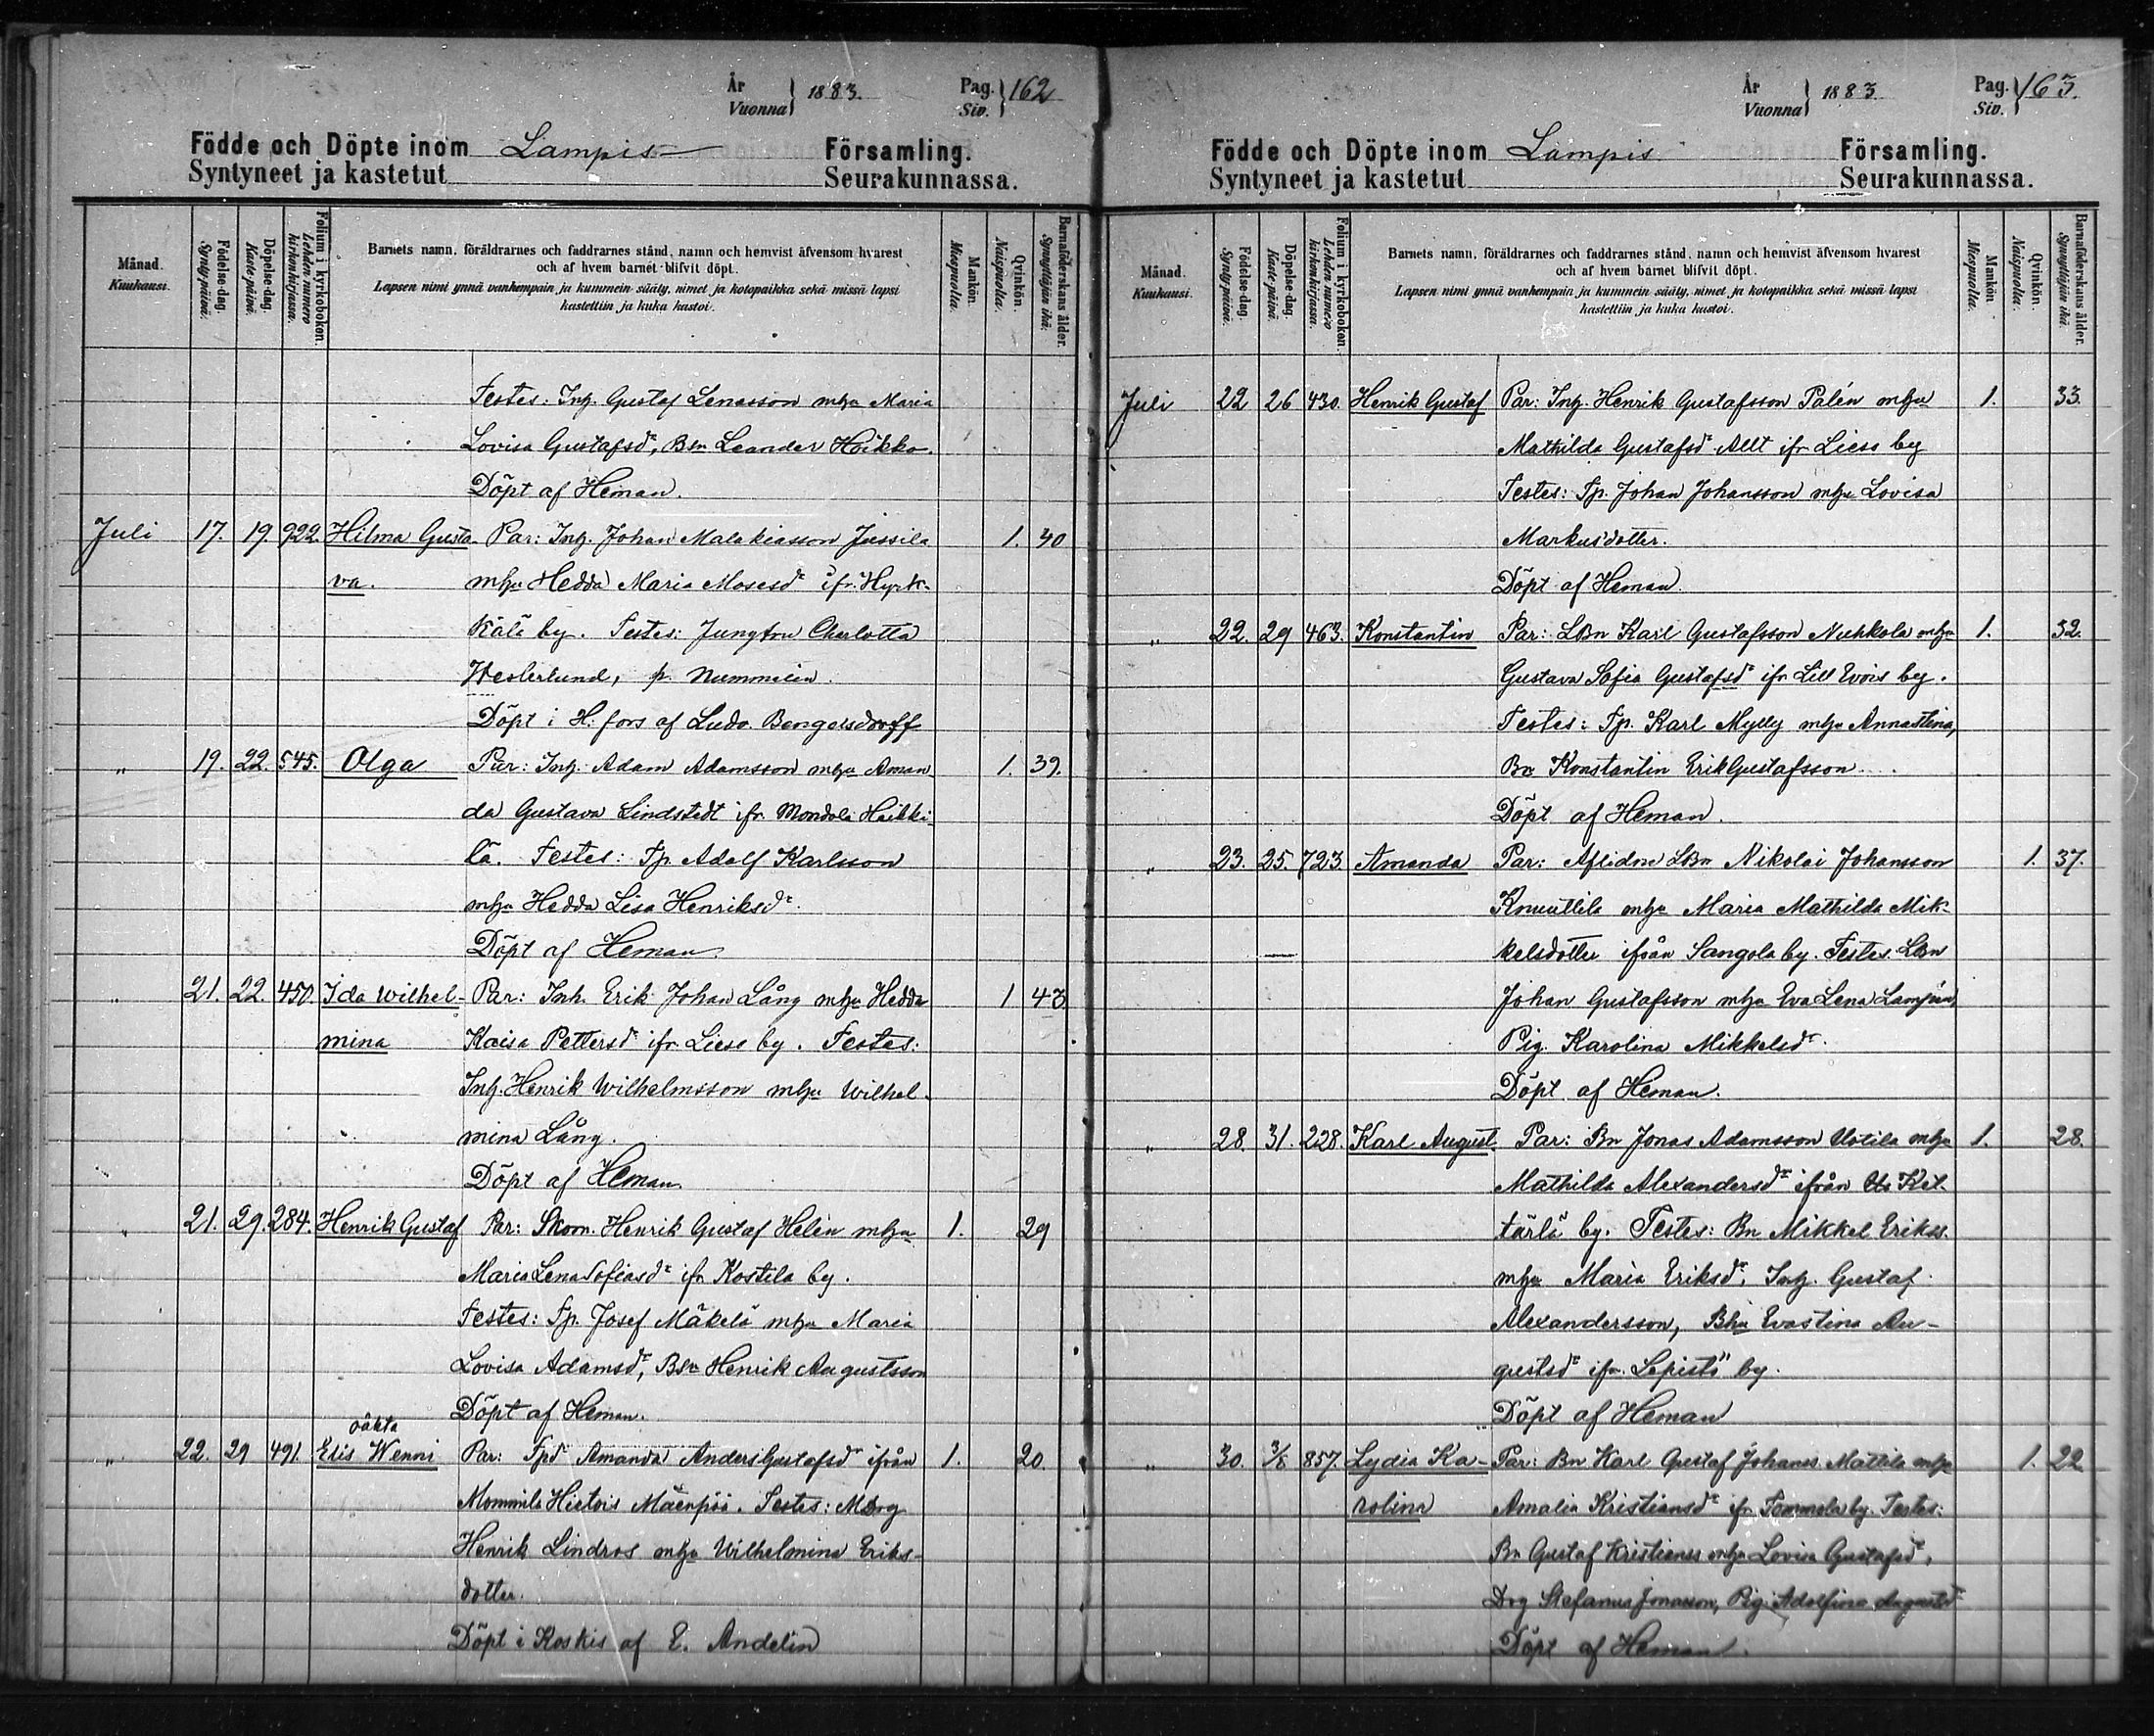 År
Vuonna } 1883. Pag.
Siv. } 162
Födde och Döpte inom Lampis Församling.
Syntyneet ja kastetut Seurakunnassa.
Månad.
Kuukausi.
Födelse-dag.
Synty-päivä.
Döpelse-dag.
Kaste-päivä.
Folium i kyrkoboken.
Lehden numero kirkonkirjassa.
Barnets namn, föräldrarnes och faddrarnes stånd, namn och hemvist äfvensom hvarest
och af hvem barnet blifvit döpt.
Lapsen nimi ynnä vanhempain ja kummein sääty, nimet ja kotopaikka sekä missä lapsi
kastettiin ja kuka kastoi.
Mankön.
Miespuolta.
Qvinkön.
Naispuolta.
Barnaföderskans ålder.
Synnyttäjän ikä.
Testes: Inh. Gustaf Lenasson mhu Maria
Lovisa Gustafsdr, Bsn Leander Hoikka.
Döpt af Heman.
Juli 17. 19. 922. Hilma Gusta- Par: Inh. Johan Malakiasson Jussila 1. 40
va. mhu Hedda Maria Mosesdr ifr. Hyrk-
källä by. Testes: Jungfru Charlotta
Westerlund, p. Nummelin.
Döpt i H:fors af Ludv. Bengelsdorff
" 19. 22. 545. Olga Par: Inh. Adam Adamsson mhu Aman- 1. 39.
da Gustava Lindstedt ifr. Mondola Haikki-
lä. Testes: Tp. Adolf Karlsson
mhu Hedda Lisa Henriksdr.
Döpt af Heman
" 21. 22. 450. Ida Wilhel- Par: Inh. Erik Johan Lång mhu Hedda 1 43
mina Kaisa Pettersdr ifr. Lieso by. Testes:
Inh. Henrik Wilhelmsson mhu Wilhel-
mina Lång.
Döpt af Heman.
" 21. 29. 284. Henrik Gustaf Par: Skom. Henrik Gustaf Helén mhu 1. 29
Maria Lena Sofiasdr ifr Kostila by.
Testes: Tp. Josef Mäkelä mhu Maria
Lovisa Adamsdr, Bsn Henrik Augustsson
Döpt af Heman.
oäkta
" 22. 29 491. Elis Wenni Par: Tpdr Amanda AndersGustafsdr ifrån 1. 20.
Mommila Hietois Mäenpää. Testes: MDrg
Henrik Lindros mhu Wilhelmina Eriks-
dotter.
Döpt i Koskis af E. Andelin
År
Vuonna } 1883 Pag.
Siv. } 163.
Födde och Döpte inom Lampis Församling.
Syntyneet ja kastetut Seurakunnassa.
Månad.
Kuukausi.
Födelse-dag.
Synty-päivä.
Döpelse-dag.
Kaste-päivä.
Folium i kyrkoboken.
Lehden numero kirkonkirjassa.
Barnets namn, föräldrarnes och faddrarnes stånd, namn och hemvist äfvensom hvarest
och af hvem barnet blifvit döpt.
Lapsen nimi ynnä vanhempain ja kummein sääty, nimet ja kotopaikka sekä missä lapsi
kastettiin ja kuka kastoi.
Mankön.
Miespuolta.
Qvinkön.
Naispuolta.
Barnaföderskans ålder.
Synnyttäjän ikä.
Juli 22 26 430. Henrik Gustaf Par: Inh. Henrik Gustafsson Palén mhu 1. 33.
Mathilda Gustafsdr Allt ifr Lieso by
Testes: Tp. Johan Johansson mhu Lovisa
Markusdotter.
Döpt af Heman.
" 22. 29 463. Konstantin Par: LBn Karl Gustafsson Nuhkola mhu 1. 32.
Gustava Sofia Gustafsdr ifr Lill Evois by.
Testes: Tp. Karl Mylly mhu Annastina,
Bn Konstantin ErikGustafsson
Döpt af Heman.
" 23. 25. 723. Amanda Par: Aflidne LBn Nikolai Johansson 1. 37.
Knuutila mhu Maria Mathilda Mik-
kelsdotter ifrån Sangola by. Testes. LBn
Johan Gustafsson mhu Eva Lena
Pig. Karolina Mikkelsdr.
Döpt af Heman.
" 28. 31. 228. Karl August. Par: Bn Jonas Adamsson Uotila mhu 1. 28.
Mathilda Alexandersdr ifrån Ket-
tärlä by. Testes: Bn Mikkel Erikss.
mhu Maria Eriksdr, Inh. Gustaf
Alexandersson, Bhu Evastina Au-
gustsdr ifr. Lepistö by.
Döpt af Heman
" 30. 3/8 857. Lydia Ka- Par: Bn Karl Gustaf Johanss. Mattila mhu 1. 22
rolina Amalia Kristiansdr ifr Tommola by. Testes:
Bn Gustaf Kristianss mhu Lovisa Gustafsdr,
Drg Stefanus Jonasson, Pig. Adolfina Augustsdr
Döpt af Heman.